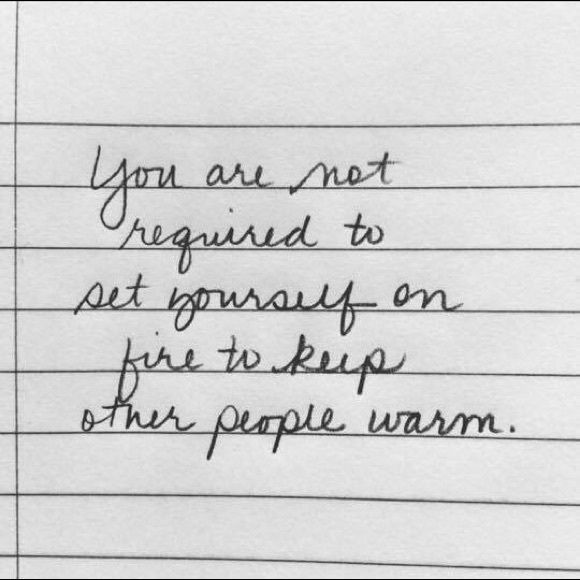 You are not
required to
set yourself on
fire to keep
other people warm.